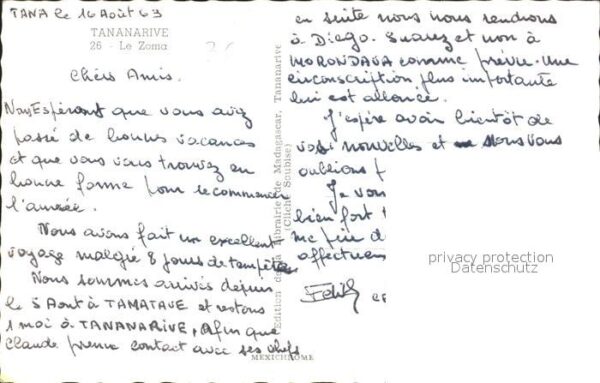 TANA le 16 Août 63
TANANARIVE
26 - Le Zoma
Chers Amis.
Nous Espérons que vous avez
passé de bonnes vacances
et que vous vous trouvez en
bonne forme pour recommencer
l'année.
Nous avons fait un excellent
voyage malgré 8 jours de tempêtes
Nous sommes arrivés depuis
le 5 Août à TAMATAVE et restons
1 moi à TANANARIVE, afin que
Claude prenne contact avec ses chefs
Edition de la Librairie de Madagascar, Tananarive
(Cliché Soubise)
MEXICHROME
en suite nous nous rendrons
à Diego. Suarez et non à
MORONDAVA comme prévu. Une
circonscription plus importante
lui est allouée.
J'espère avoir bientôt de
vos nouvelles et Nous vous
oublions
Je vou
bien fort
me
affectueu
privacy protection
Datenschutz